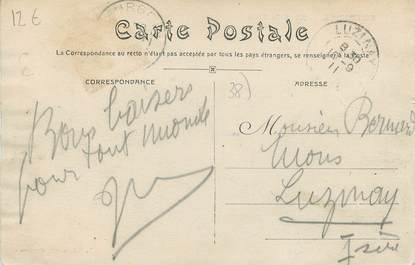 12€
Carte Postale
La Correspondance au recto n'était pas acceptée par tous les pays étrangers, se renseigner à la Poste
CORRESPONDANCE
ADRESSE
38)
Bons baisers
pour tout monde
Monsieur Bernard
Mons
Luzinay
Isère
LUZINAY